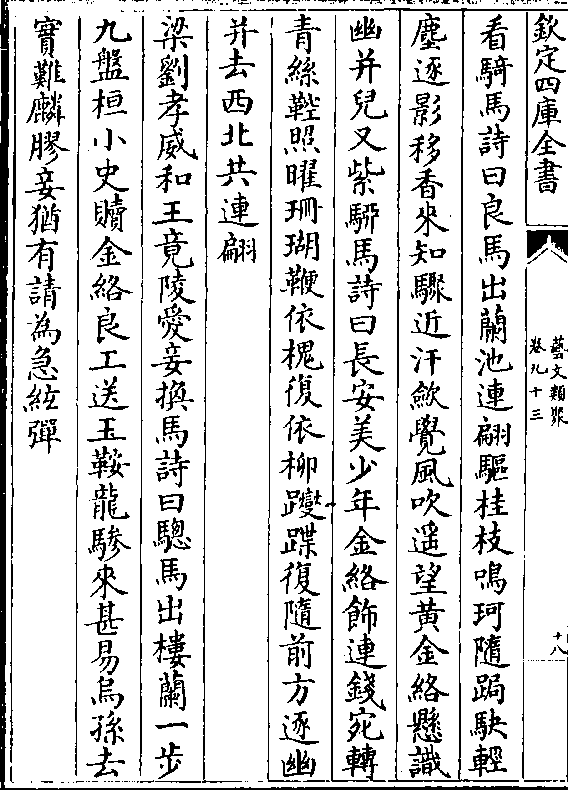 欽定四庫全書
藝文類聚
卷九十三
十八
看騎馬詩曰良馬出蘭池連翩驅桂枝鳴珂隨跼駃輕
塵逐影移香來知驟近汗歛覺風吹遥望黄金絡懸識
幽并兒又紫騮馬詩曰長安美少年金絡飾連錢宛轉
青絲鞚照曜珊瑚鞭依槐復依柳躞蹀復隨前方逐幽
并去西北共連翩
梁劉孝威和王竟陵愛妾換馬詩曰驄馬出樓蘭一步
九盤桓小史贖金絡良工送玉鞍龍驂來甚易烏孫去
實難麟膠妾猶有請為急絃彈